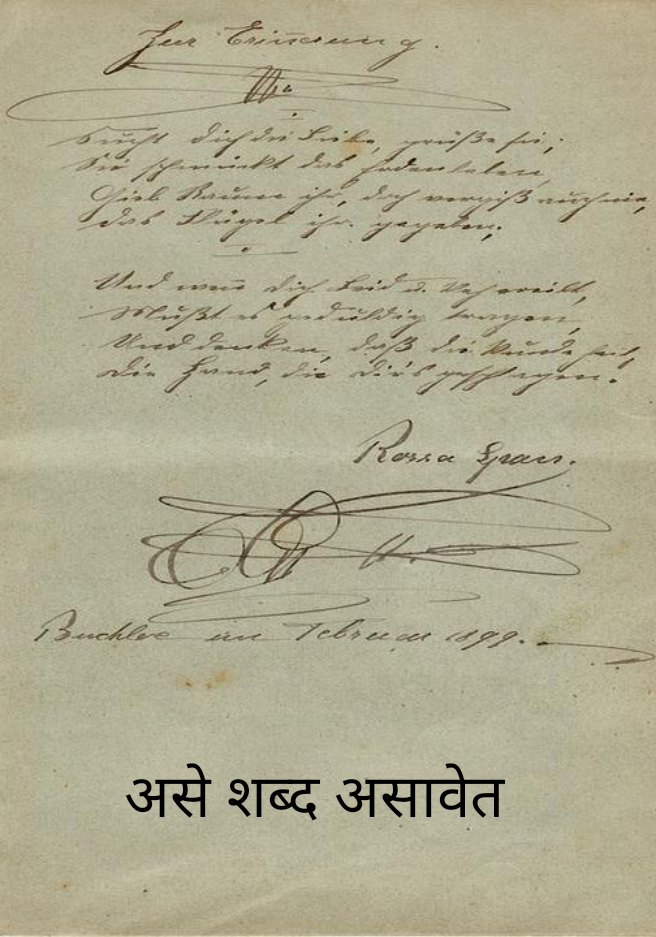 Zur Erinnerung.
Sucht dich die Liebe, grüße sie;
Sie schmückt das Erdenleben,
Gieb Raum ihr, doch vergiß auch nie,
das Flügel ihr gegeben.
Und wenn dich Leid u. Weh ereilt,
Mußt es geduldig tragen,
Und denken, daß die Wunde heilt,
die Hand, die dir's geschlagen.
Rosa
Buchloe im Februar 1899.
असे शब्द असावेत